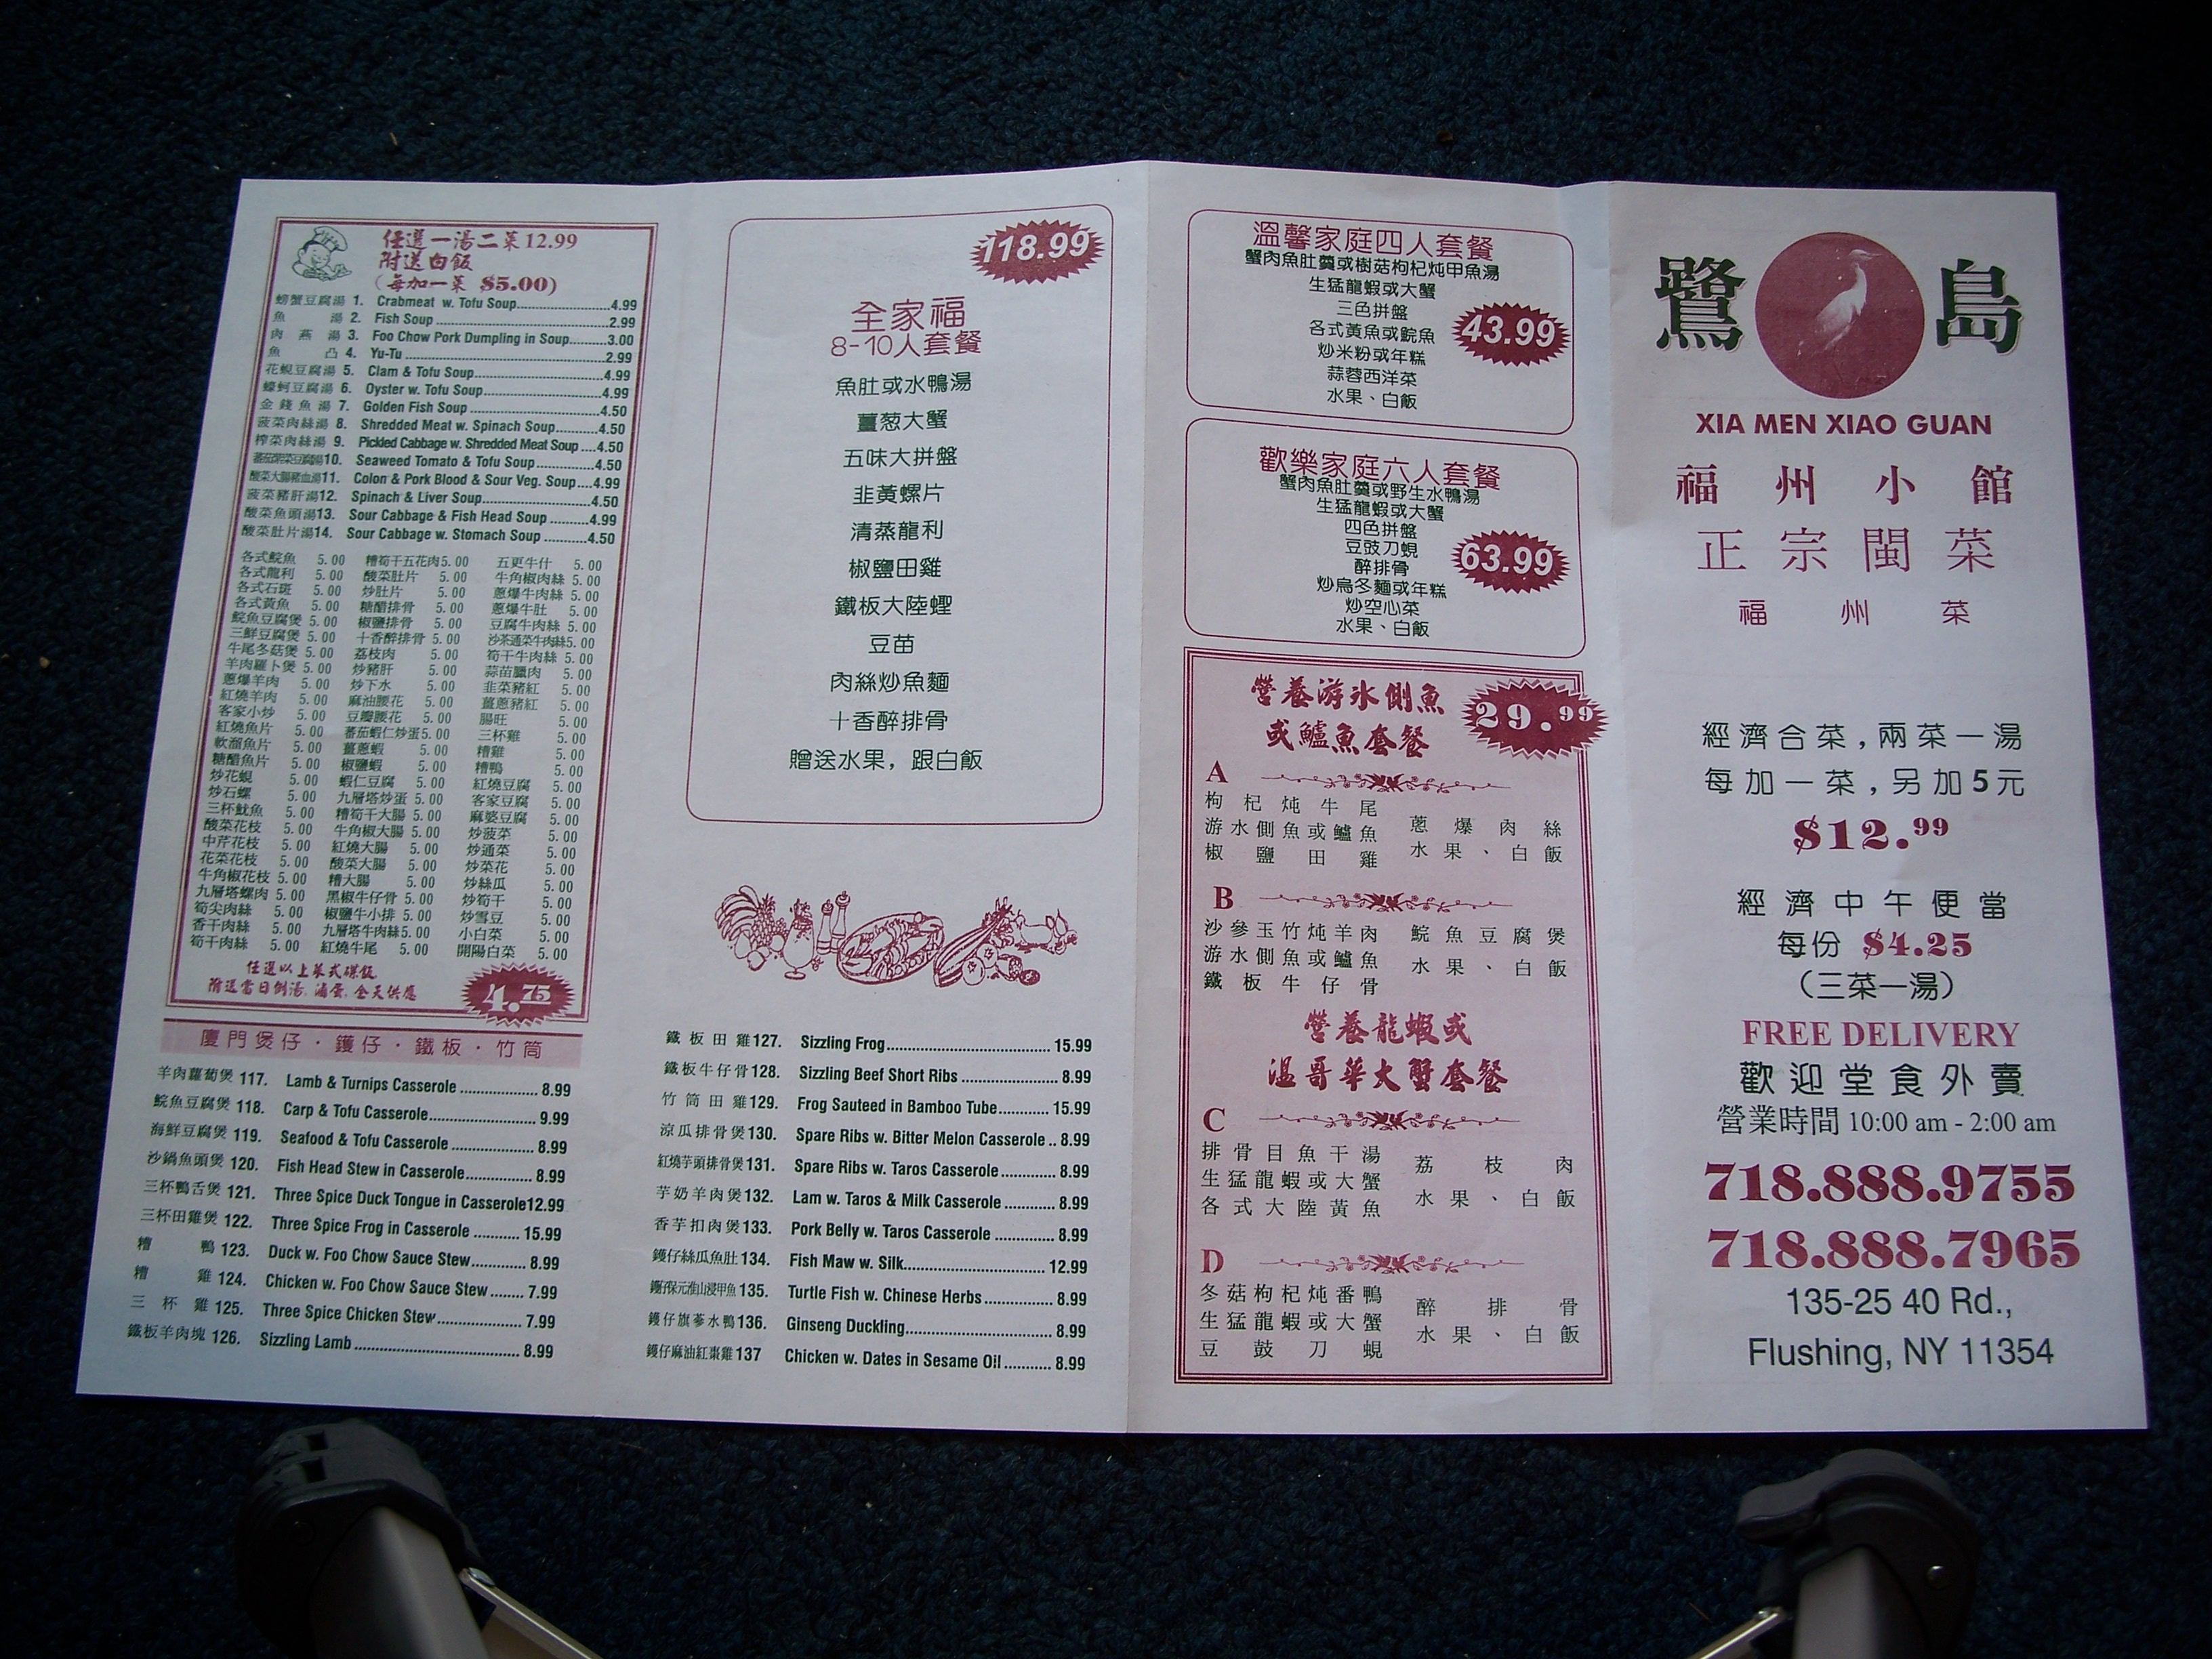 任選一湯二菜12.99
附送白飯
(每加一菜 $5.00)
螃蟹豆腐湯 1. Crabmeat w. Tofu Soup 4.99
魚湯 2. Fish Soup 2.99
肉燕湯 3. Foo Chow Pork Dumpling in Soup 3.00
魚凸 4. Yu-Tu 2.99
花蜆豆腐湯 5. Clam & Tofu Soup 4.99
蠔蚵豆腐湯 6. Oyster w. Tofu Soup 4.99
金錢魚湯 7. Golden Fish Soup 4.50
菠菜肉絲湯 8. Shredded Meat w. Spinach Soup 4.50
榨菜肉絲湯 9. Pickled Cabbage w. Shredded Meat Soup 4.50
10. Seaweed Tomato & Tofu Soup 4.50
酸菜大腸豬血湯 11. Colon & Pork Blood & Sour Veg. Soup 4.99
菠菜豬肝湯 12. Spinach & Liver Soup 4.50
酸菜魚頭湯 13. Sour Cabbage & Fish Head Soup 4.99
酸菜肚片湯 14. Sour Cabbage w. Stomach Soup 4.50
各式鯇魚 5.00 糟筍干五花肉 5.00 五更牛什 5.00
各式龍利 5.00 酸菜肚片 5.00 牛角椒肉絲 5.00
各式石斑 5.00 炒肚片 5.00 蔥爆牛肉絲 5.00
各式黃魚 5.00 糖醋排骨 5.00 蔥爆牛肚 5.00
鯇魚豆腐煲 5.00 椒鹽排骨 5.00 豆腐牛肉絲 5.00
三鮮豆腐煲 5.00 十香醉排骨 5.00 沙茶通菜牛肉絲 5.00
牛尾冬菇煲 5.00 荔枝肉 5.00 筍干牛肉絲 5.00
羊肉羅卜煲 5.00 炒豬肝 5.00 蒜苗臘肉 5.00
蔥爆羊肉 5.00 炒下水 5.00 韭菜豬紅 5.00
紅燒羊肉 5.00 麻油腰花 5.00 薑蔥豬紅 5.00
客家小炒 5.00 豆瓣腰花 5.00 腸旺 5.00
紅燒魚片 5.00 蕃茄蝦仁炒蛋 5.00 三杯雞 5.00
軟溜魚片 5.00 薑蔥蝦 5.00 糟雞 5.00
糖醋魚片 5.00 椒鹽蝦 5.00 糟鴨 5.00
炒花蜆 5.00 蝦仁豆腐 5.00 紅燒豆腐 5.00
炒石螺 5.00 九層塔炒蛋 5.00 客家豆腐 5.00
三杯魷魚 5.00 糟筍干大腸 5.00 麻婆豆腐 5.00
酸菜花枝 5.00 牛角椒大腸 5.00 炒菠菜 5.00
中芹花枝 5.00 紅燒大腸 5.00 炒通菜 5.00
花菜花枝 5.00 酸菜大腸 5.00 炒菜花 5.00
牛角椒花枝 5.00 糟大腸 5.00 炒絲瓜 5.00
九層塔螺肉 5.00 黑椒牛仔骨 5.00 炒筍干 5.00
筍尖肉絲 5.00 椒鹽牛小排 5.00 炒雪豆 5.00
香干肉絲 5.00 九層塔牛肉絲 5.00 小白菜 5.00
筍干肉絲 5.00 紅燒牛尾 5.00 開陽白菜 5.00
任選以上菜式碟飯
附送當日例湯, 滷蛋, 全天供應
4.75
廈門煲仔·鑊仔·鐵板·竹筒
羊肉蘿蔔煲 117. Lamb & Turnips Casserole 8.99
鯇魚豆腐煲 118. Carp & Tofu Casserole 9.99
海鮮豆腐煲 119. Seafood & Tofu Casserole 8.99
沙鍋魚頭煲 120. Fish Head Stew in Casserole 8.99
三杯鴨舌煲 121. Three Spice Duck Tongue in Casserole 12.99
三杯田雞煲 122. Three Spice Frog in Casserole 15.99
糟鴨 123. Duck w. Foo Chow Sauce Stew 8.99
糟雞 124. Chicken w. Foo Chow Sauce Stew 7.99
三杯雞 125. Three Spice Chicken Stew 7.99
鐵板羊肉塊 126. Sizzling Lamb 8.99
118.99
全家福
8-10人套餐
魚肚或水鴨湯
薑葱大蟹
五味大拼盤
韭黃螺片
清蒸龍利
椒鹽田雞
鐵板大陸蟶
豆苗
肉絲炒魚麵
十香醉排骨
贈送水果，跟白飯
鐵板田雞 127. Sizzling Frog 15.99
鐵板牛仔骨 128. Sizzling Beef Short Ribs 8.99
竹筒田雞 129. Frog Sauteed in Bamboo Tube 15.99
涼瓜排骨煲 130. Spare Ribs w. Bitter Melon Casserole 8.99
紅燒芋頭排骨煲 131. Spare Ribs w. Taros Casserole 8.99
芋奶羊肉煲 132. Lam w. Taros & Milk Casserole 8.99
香芋扣肉煲 133. Pork Belly w. Taros Casserole 8.99
鑊仔絲瓜魚肚 134. Fish Maw w. Silk 12.99
135. Turtle Fish w. Chinese Herbs 8.99
鑊仔旗蔘水鴨 136. Ginseng Duckling 8.99
鑊仔麻油紅棗雞 137 Chicken w. Dates in Sesame Oil 8.99
溫馨家庭四人套餐
蟹肉魚肚羹或樹菇枸杞炖甲魚湯
生猛龍蝦或大蟹
三色拼盤
各式黃魚或鯇魚
炒米粉或年糕
蒜蓉西洋菜
水果、白飯
43.99
歡樂家庭六人套餐
蟹肉魚肚羹或野生水鴨湯
生猛龍蝦或大蟹
四色拼盤
豆豉刀蜆
醉排骨
炒烏冬麵或年糕
炒空心菜
水果、白飯
63.99
營養游水側魚
或鱸魚套餐
29.99
A
枸杞炖牛尾
游水側魚或鱸魚 蔥爆肉絲
椒鹽田雞 水果、白飯
B
沙參玉竹炖羊肉 鯇魚豆腐煲
游水側魚或鱸魚 水果、白飯
鐵板牛仔骨
營養龍蝦或
溫哥華大蟹套餐
C
排骨目魚干湯 荔枝肉
生猛龍蝦或大蟹 水果、白飯
各式大陸黃魚
D
冬菇枸杞炖番鴨 醉排骨
生猛龍蝦或大蟹 水果、白飯
豆鼓刀蜆
鷺島
XIA MEN XIAO GUAN
福州小館
正宗閩菜
福州菜
經濟合菜,兩菜一湯
每加一菜,另加5元
$12.99
經濟中午便當
每份 $4.25
(三菜一湯)
FREE DELIVERY
歡迎堂食外賣
營業時間 10:00 am - 2:00 am
718.888.9755
718.888.7965
135-25 40 Rd.,
Flushing, NY 11354